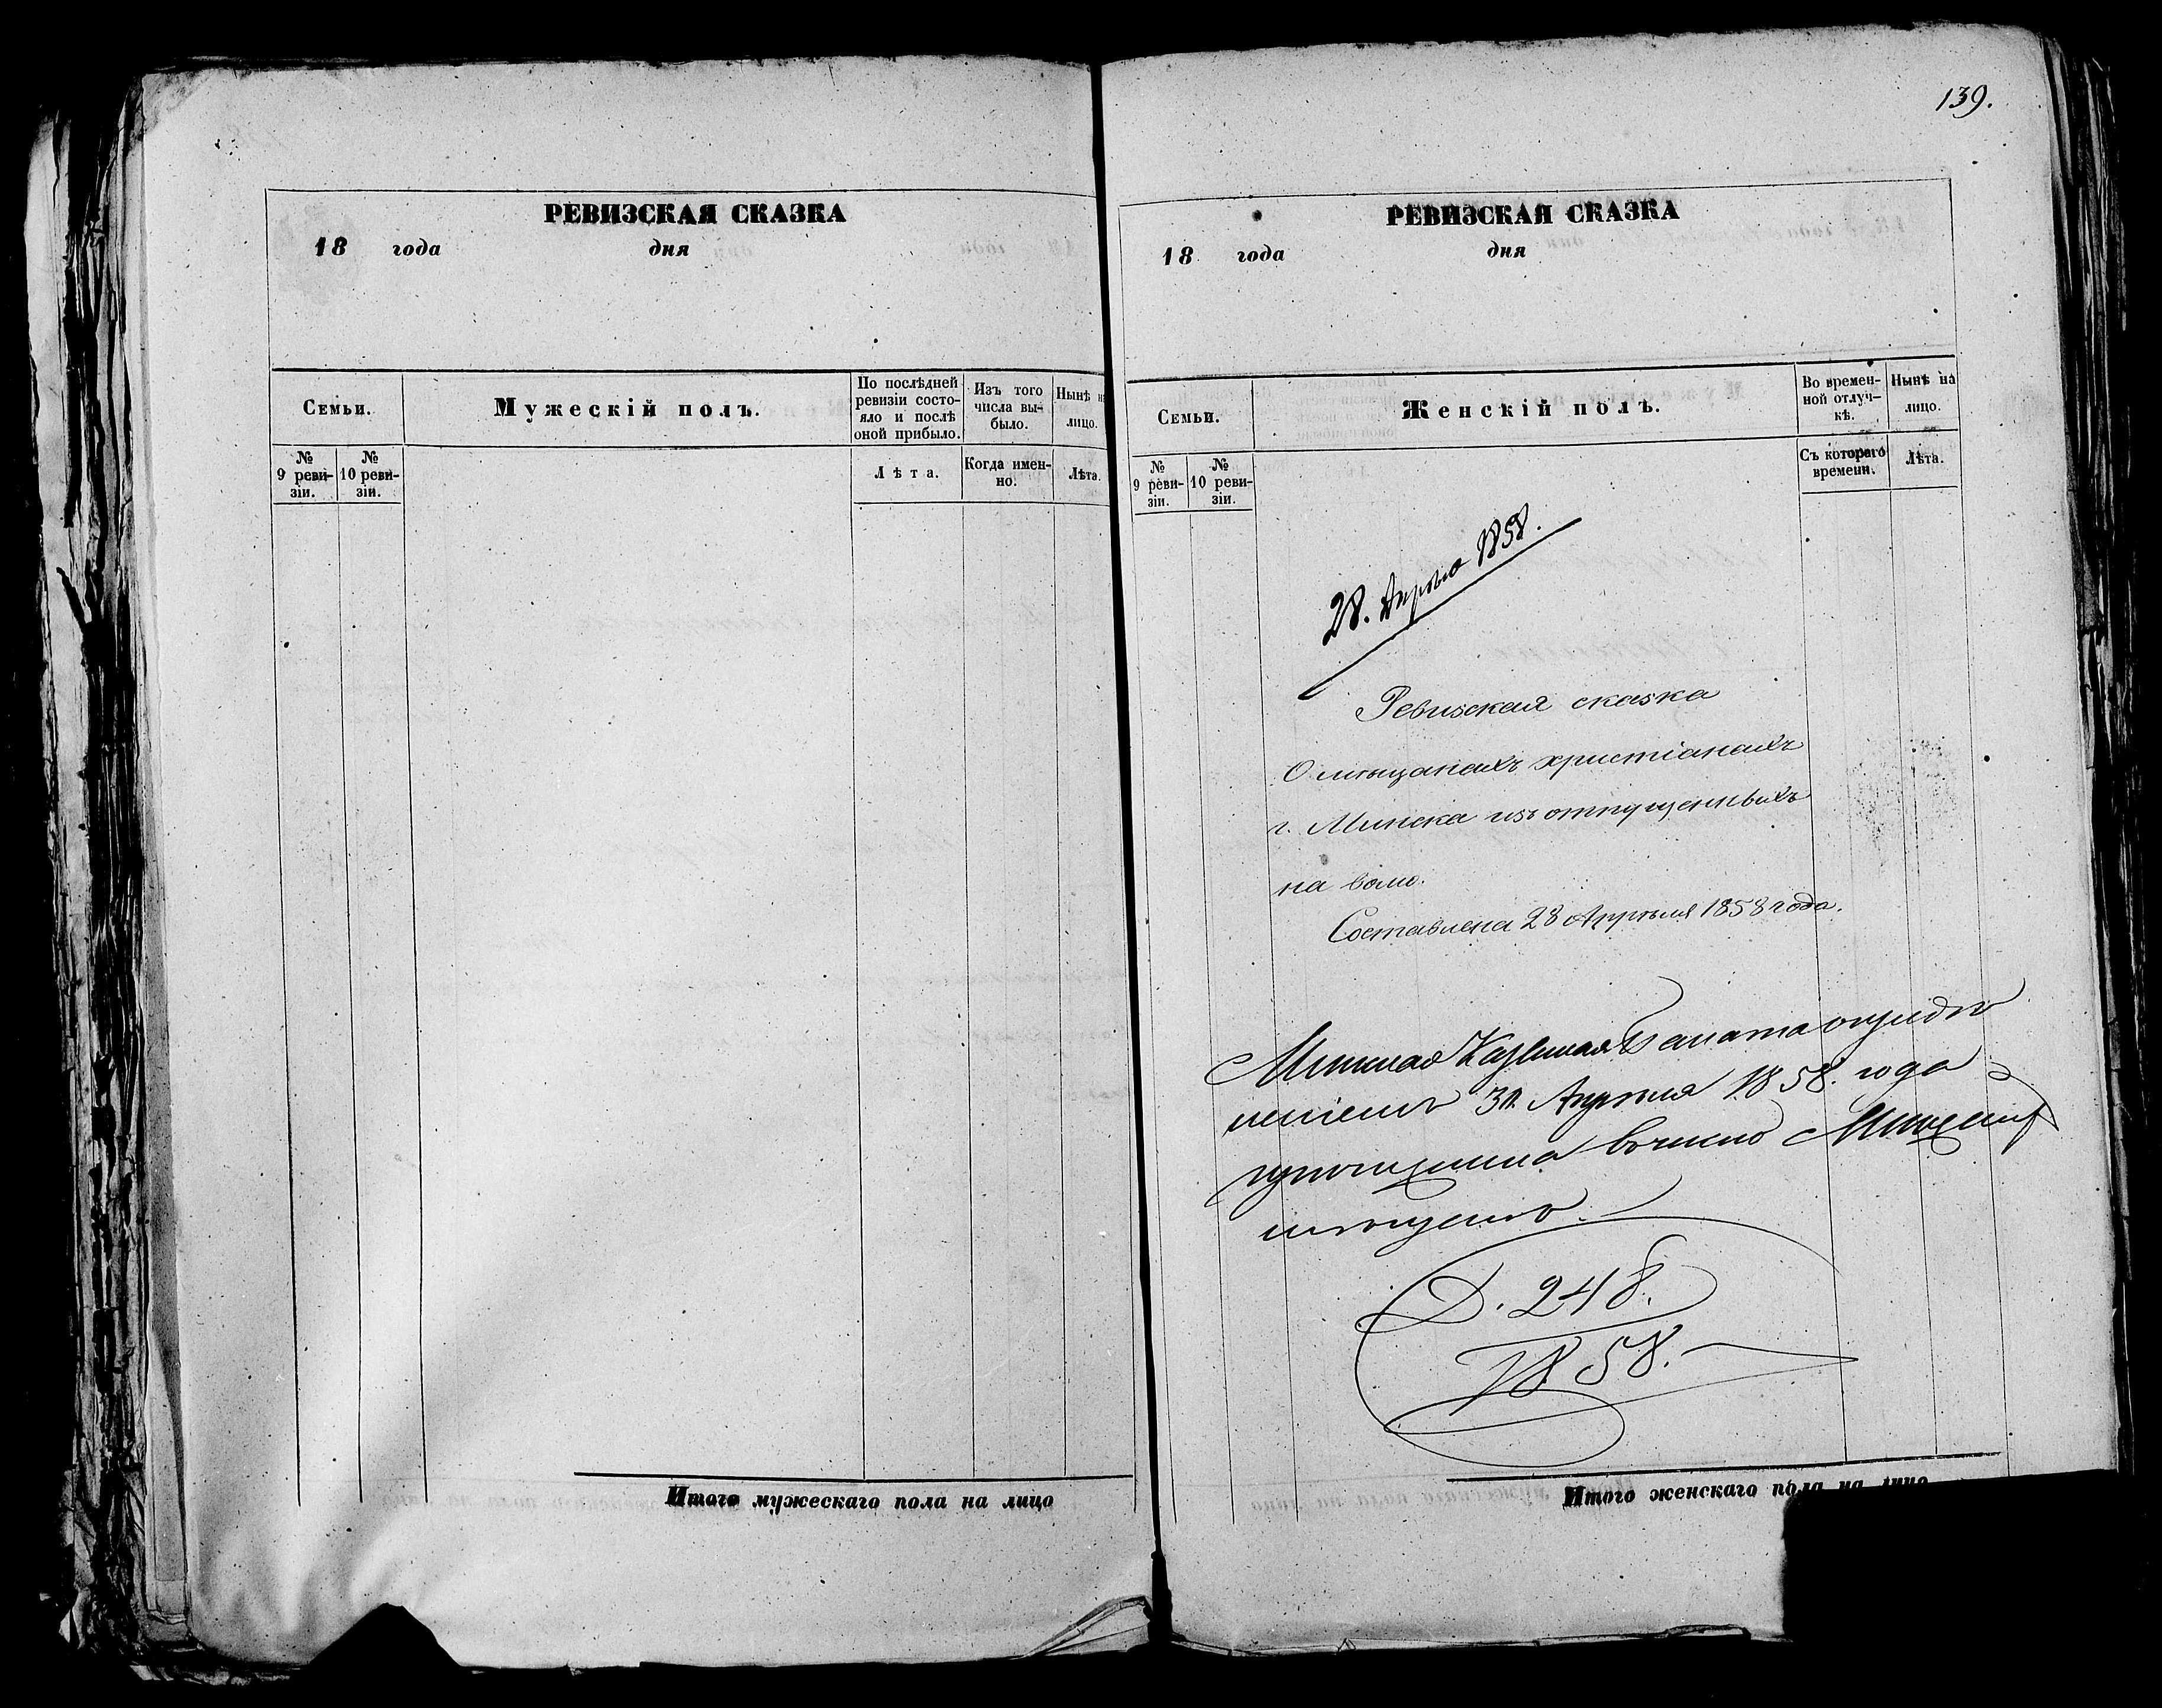 РЕВИЗСКАЯ СКАЗКА
18 года дня
Семьи.
Мужескій полъ.
По послѣдней
ревизіи состо-
яло и послѣ
оной прибыло.
Изъ того
числа вы-
было.
Нынѣ на
лицо.
№
9 реви-
зіи.
№
10 реви-
зіи.
Лѣта.
Когда имен-
но.
Лѣта.
Итого мужескаго пола на лицо
139.
РЕВИЗСКАЯ СКАЗКА
18 года дня
Семьи.
Женскій полъ.
Во времен-
ной отлуч-
кѣ.
Нынѣ на
лицо.
№
9 реви-
зіи.
№
10 реви-
зіи.
Съ котораго
времени.
Лѣта.
28. Апрѣля 1858.
Ревизская сказка
О мѣщанахъ христіанахъ
г. Минска изъ отпущенныхъ
на волю.
Составлена 28 Апрѣля 1858 года.
Минская Казенная Палата опредѣ
леніемъ Апрѣля 1858. года
въ число
мѣщанъ.
Д. 248.
1858.
Итого женскаго пола на лицо